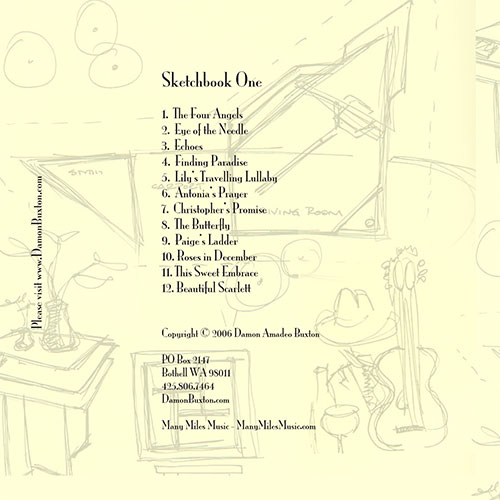 Sketchbook One
1. The Four Angels
2. Eye of the Needle
3. Echoes
4. Finding Paradise
5. Lily's Travelling Lullaby
6. Antonia's Prayer
7. Christopher's Promise
8. The Butterfly
9. Paige's Ladder
10. Roses in December
11. This Sweet Embrace
12. Beautiful Scarlett
Copyright © 2006 Damon Amadeo Buxton
PO Box 2147
Bothell WA 98011
425.806.7464
DamonBuxton.com
Many Miles Music - ManyMilesMusic.com
Please visit www.DamonBuxton.com
LIVING ROOM